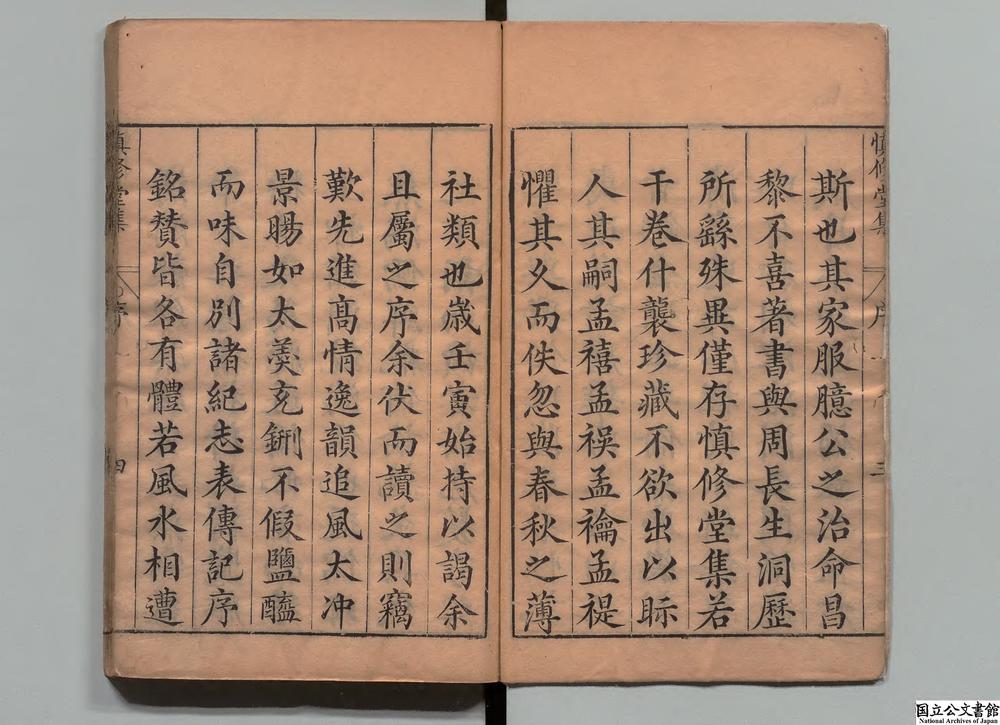 慎修堂集
序
三
斯也其家服臆公之治命昌
黎不喜著書與周長生洞歷
所繇殊異僅存慎修堂集若
干卷什襲珍藏不欲出以眎
人其嗣孟禧孟祦孟禴孟禔
懼其久而佚忽與春秋之薄
社類也歲壬寅始持以謁余
且屬之序余伏而讀之則竊
歎先進高情逸韻追風太冲
景暘如太羹充鉶不假鹽醯
而味自別諸紀志表傳記序
銘贊皆各有體若風水相遭
慎修堂集
序
四
国立公文書館
National Archives of Japan